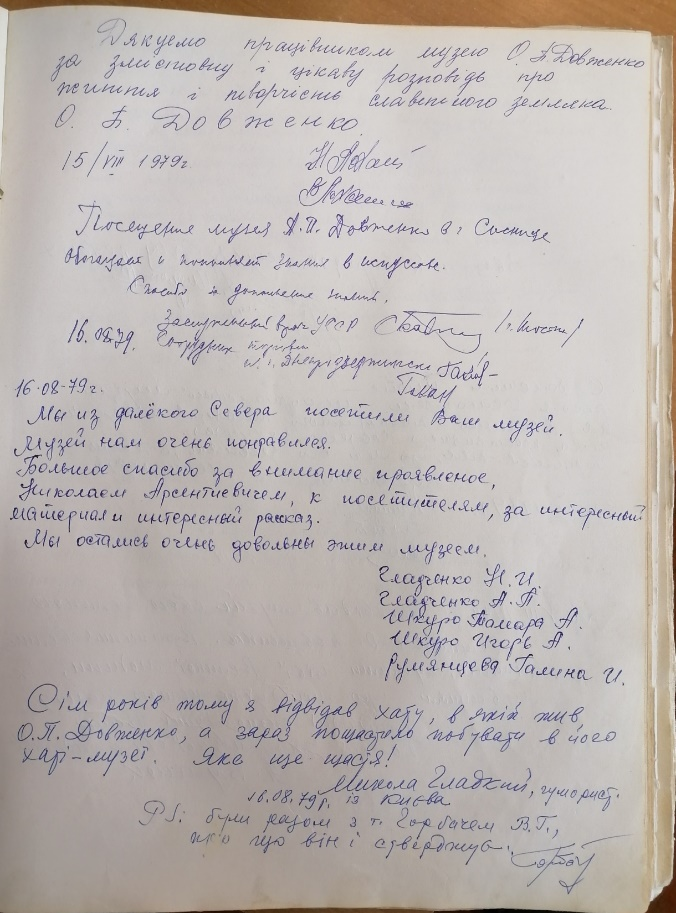 Дякуємо працівникам музею О. П. Довженко
за змістовну і цікаву розповідь про
життя і творчість славетного земляка
О. П. Довженко.
15/VIII 1979г.
Посещение музея А.П. Довженко в г Соснице
обогащает и пополняет знания в искусстве.
Спасибо за дополнение знаний.
Заслуженный врач УССР
16.VIII.79. Сотрудник
г. Днепродзержинск
16.08-79г.
Мы из далёкого Севера посетили Ваш музей.
Музей нам очень понравился.
Большое спасибо за внимание проявленое,
Николаем Арсентиевичем, к посетителям, за интересный
материал и интересный рассказ.
Мы остались очень довольны этим музеем.
Гладченко Н. И.
Гладченко А. П.
Шкуро Тамара А.
Шкуро Игорь А.
Румянцева Галина И.
Сім років тому я відвідав хату, в якій жив
О.П. Довженко, а зараз пощастило побувати в його
хаті-музеї. Яке це щастя!
Микола Гладкий, гуморист.
16.08.79р. із Києва
PS: були разом з т. Горбачем В.Г.,
про що він і стверджує.